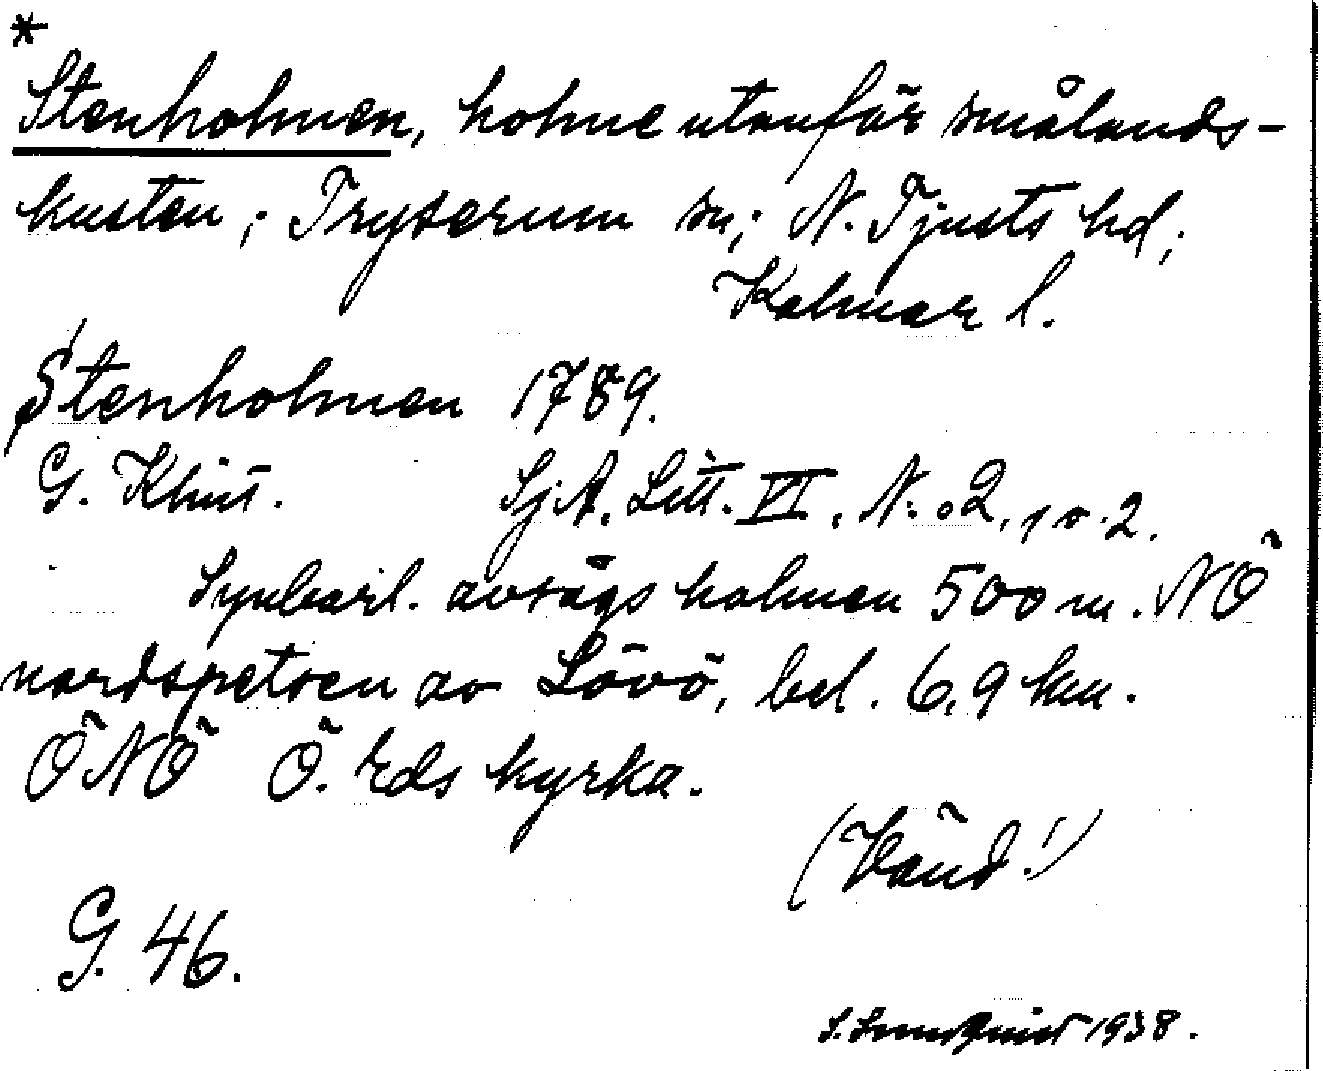 *
Stenholmen, holme utanför smålands-
kusten; Tryserum sn; N. Tjusts hd;
Kalmar l.
Stenholmen 1789.
G. Klint. Sj.A. Litt. VI, N:o 2,
Synbarl. avsågs holmen 500 m. NÖ
nordspetsen av Lövö, bel. 6,9 km.
ÖNÖ Ö. Eds kyrka.
(Vänd!)
G. 46.
S. Lundquist 1938.